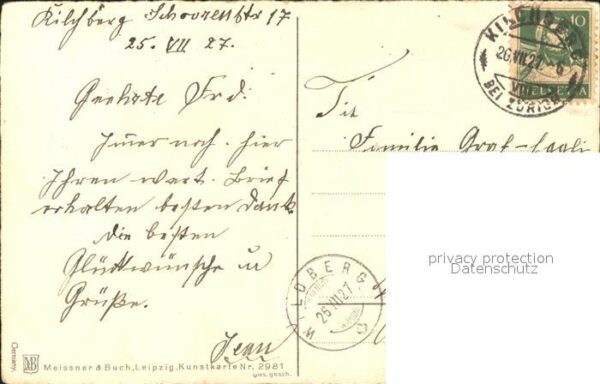 Kilchberg Schoorenstr 17
25. VII 27.
Geehrte Frd.
Immer noch hier
Ihren wert. Brief
erhalten besten Dank.
die besten
Glückwünsche u
Grüße.
Jean
Tit
Familie Graf-
KILCHBERG
26.VII.27.-6
VIII
BEI ZÜRICH
10
HELVETIA
WILDBERG
26 VII 27
privacy protection
Datenschutz
Germany.
MB
Meissner & Buch, Leipzig. Kunstkarte Nr. 2981
Ges. gesch.